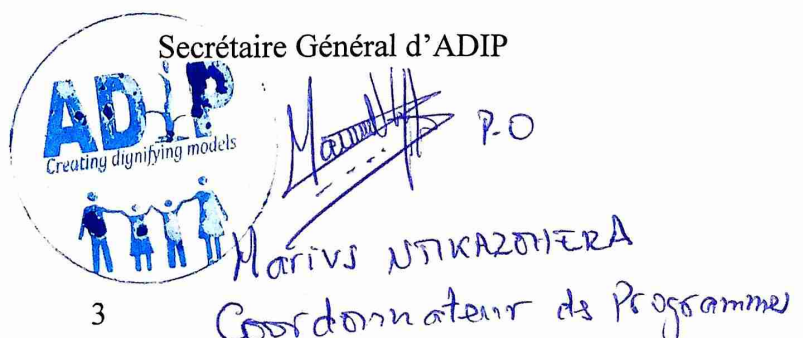 Secrétaire Général d'ADIP
ADIP
Creating dignifying models
P.O
Marius NTIKAZOHERA
Coordonnateur de Programmes
3